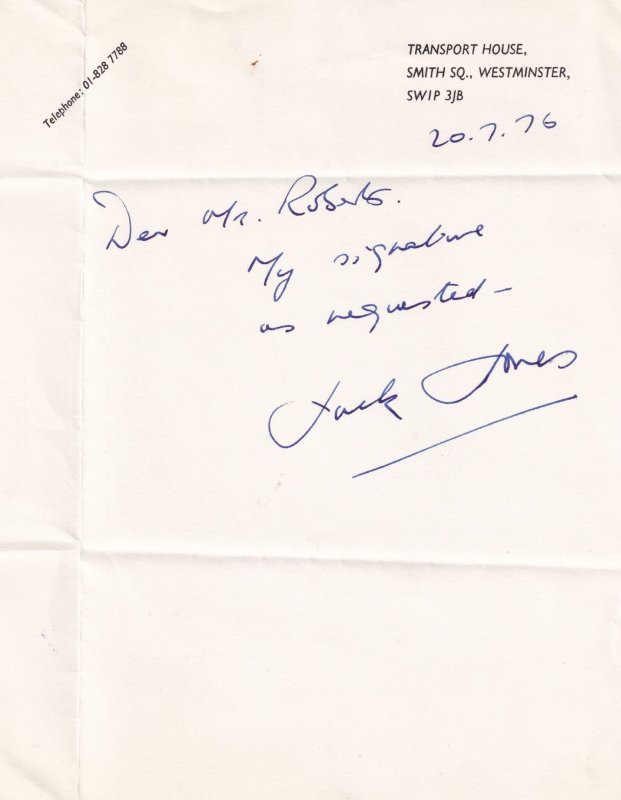 Telephone: 01-828 7788
TRANSPORT HOUSE,
SMITH SQ., WESTMINSTER,
SW1P 3JB
20.7.76
Dear Mr. Roberts.
My signature
as requested –
Jack Jones